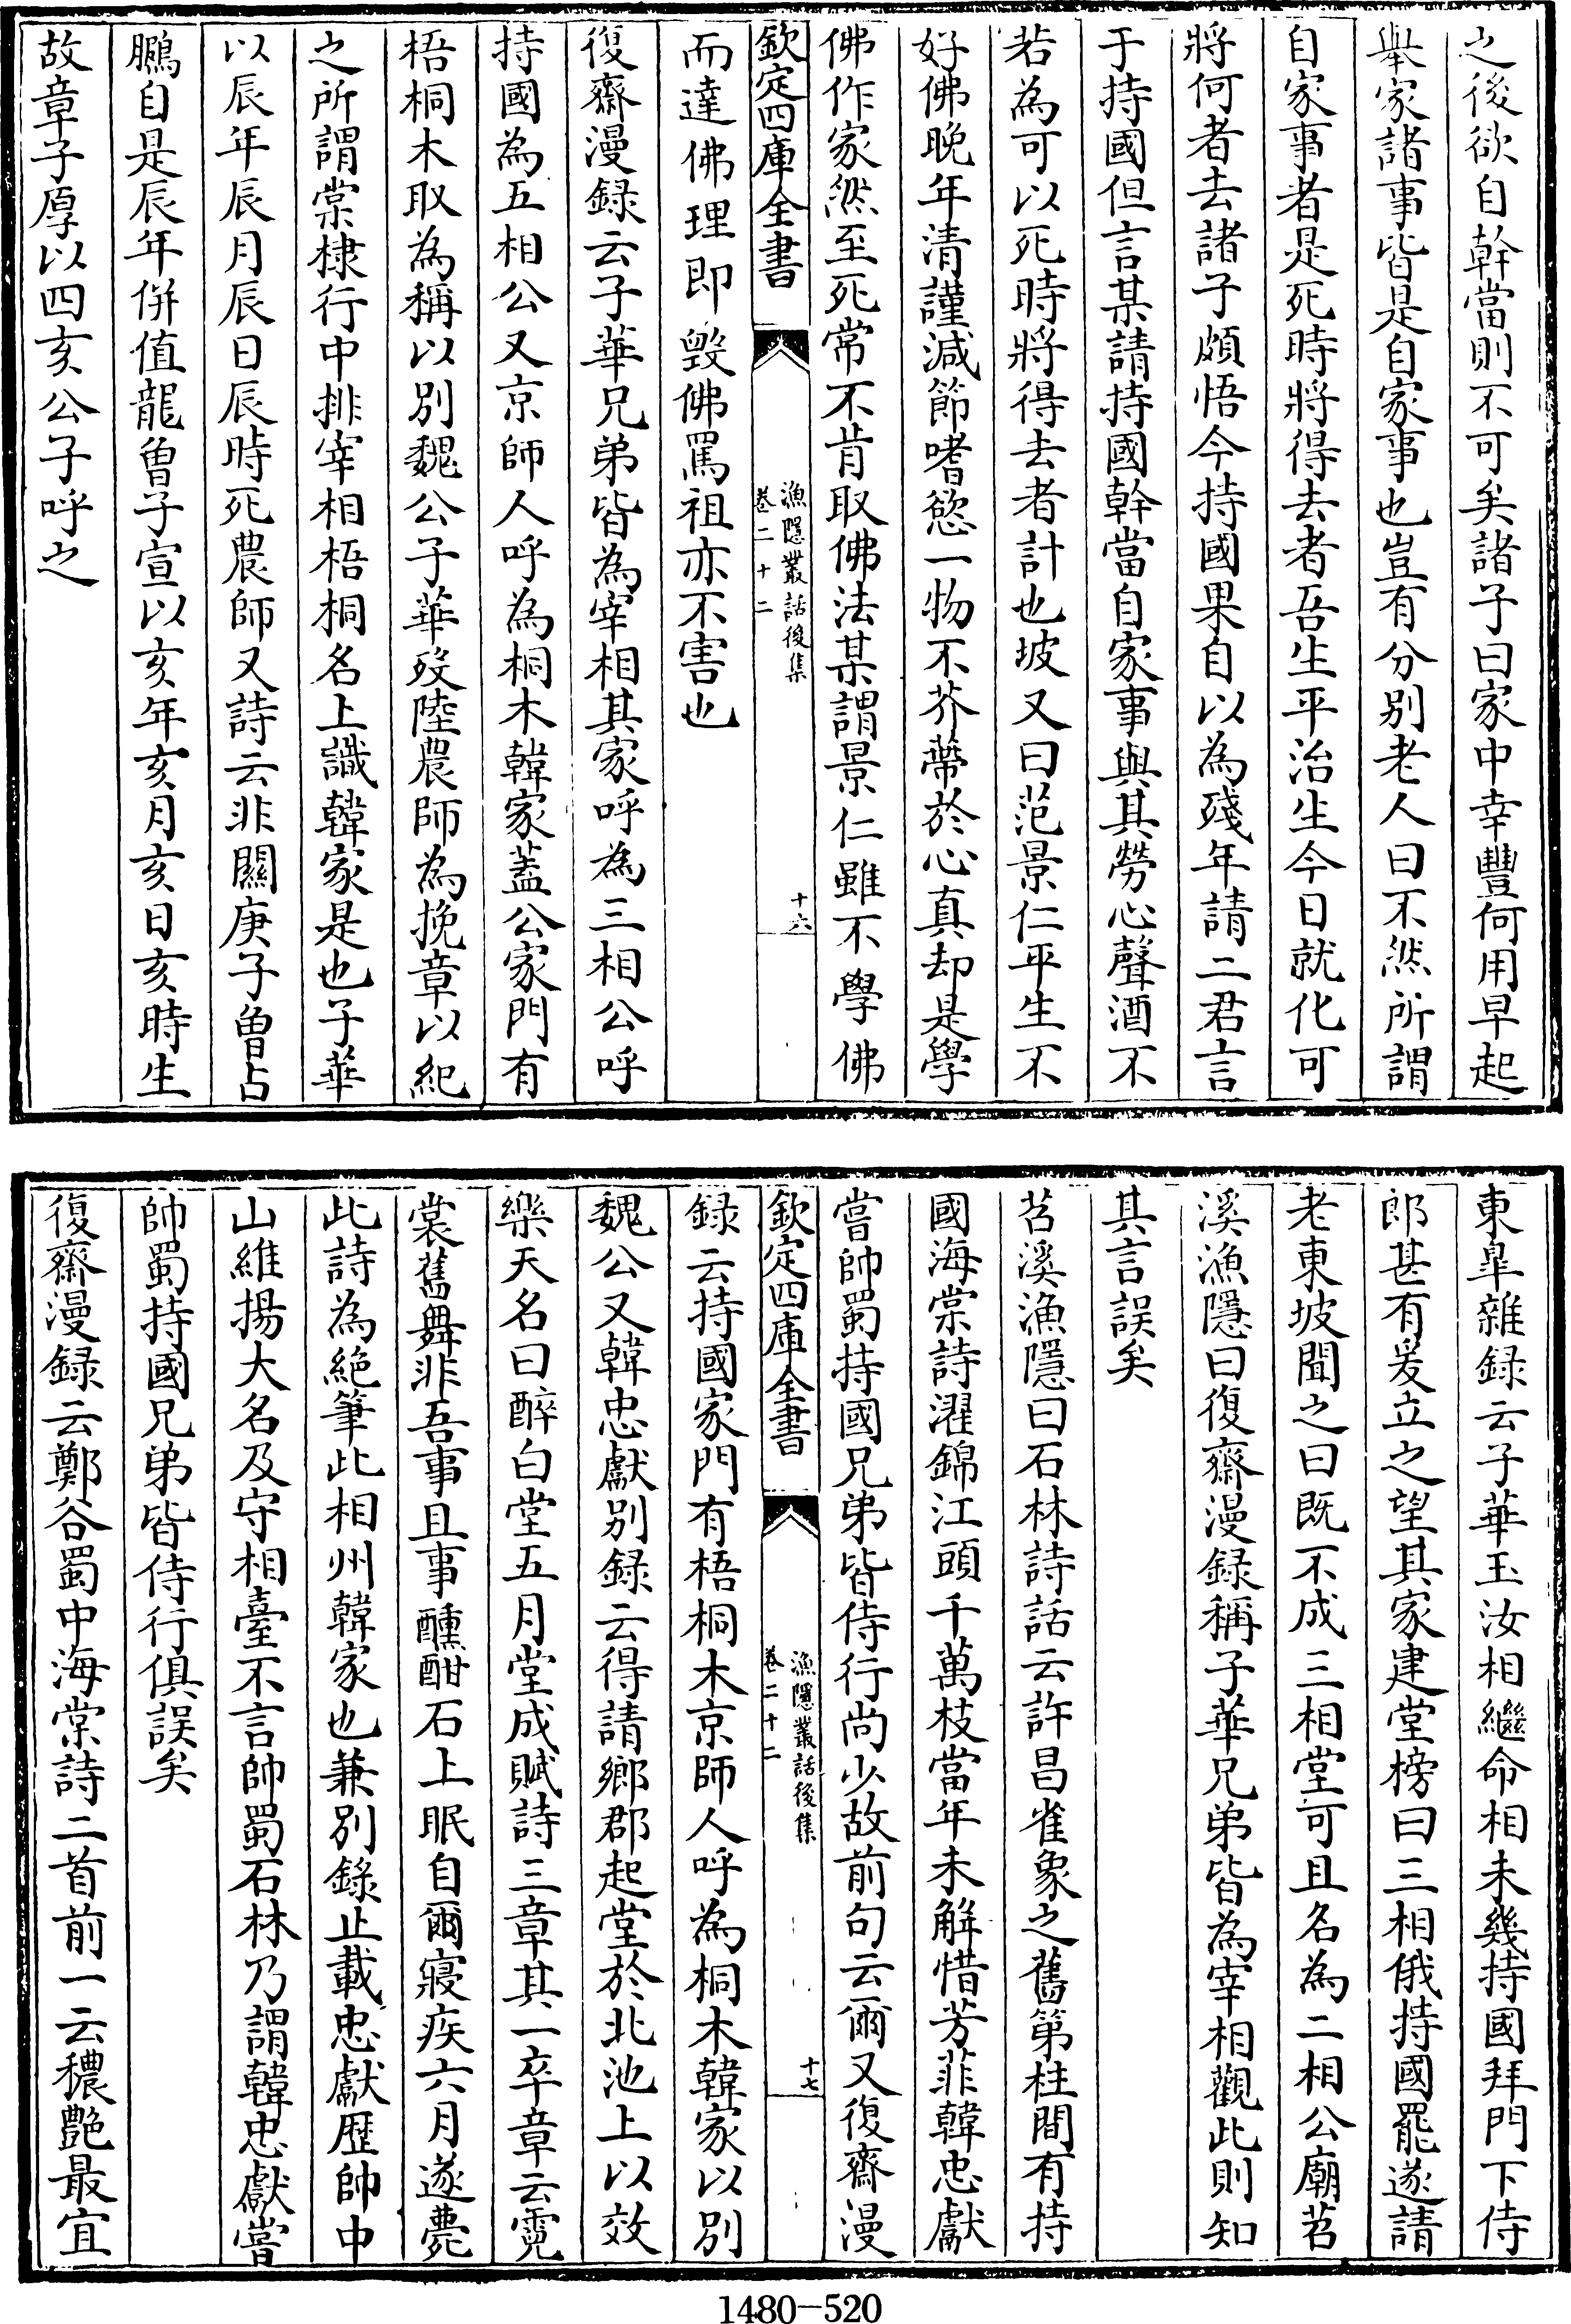 之後欲自幹當則不可矣諸子曰家中幸豐何用早起
舉家諸事皆是自家事也豈有分别老人曰不然所謂
自家事者是死時將得去者吾生平治生今日就化可
將何者去諸子頗悟今持國果自以為殘年請二君言
于持國但言某請持國幹當自家事與其勞心聲酒不
若為可以死時將得去者計也坡又曰范景仁平生不
好佛晚年清謹減節嗜慾一物不芥蔕於心真却是學
佛作家然至死常不肯取佛法某謂景仁雖不學佛
欽定四庫全書
漁隠叢話後集
卷二十二
十六
而達佛理即毀佛罵祖亦不害也
復齋漫録云子華兄弟皆為宰相其家呼為三相公呼
持國為五相公又京師人呼為桐木韓家蓋公家門有
梧桐木取為稱以别魏公子華歿陸農師為挽章以紀
之所謂棠棣行中排宰相梧桐名上識韓家是也子華
以辰年辰月辰日辰時死農師又詩云非關庚子曽占
鵩自是辰年併值龍曽子宣以亥年亥月亥日亥時生
故章子厚以四亥公子呼之
東臯雜録云子華玉汝相繼命相未幾持國拜門下侍
郎甚有爰立之望其家建堂榜曰三相俄持國罷遂請
老東坡聞之曰既不成三相堂可且名為二相公廟苕
溪漁隠曰復齋漫録稱子華兄弟皆為宰相觀此則知
其言誤矣
苕溪漁隠曰石林詩話云許昌雀象之舊第柱間有持
國海棠詩濯錦江頭千萬枝當年未解惜芳菲韓忠獻
嘗帥蜀持國兄弟皆侍行尚少故前句云爾又復齋漫
欽定四庫全書
漁隠叢話後集
卷二十二
十七
録云持國家門有梧桐木京師人呼為桐木韓家以别
魏公又韓忠獻别録云得請鄉郡起堂於北池上以效
樂天名曰醉白堂五月堂成賦詩三章其一卒章云霓
裳舊舞非吾事且事醺酣石上眠自爾寢疾六月遂薨
此詩為絶筆此相州韓家也兼别錄止載忠獻歴帥中
山維揚大名及守相臺不言帥蜀石林乃謂韓忠獻嘗
帥蜀持國兄弟皆侍行俱誤矣
復齋漫録云鄭谷蜀中海棠詩二首前一云穠艷最宜
1480—520